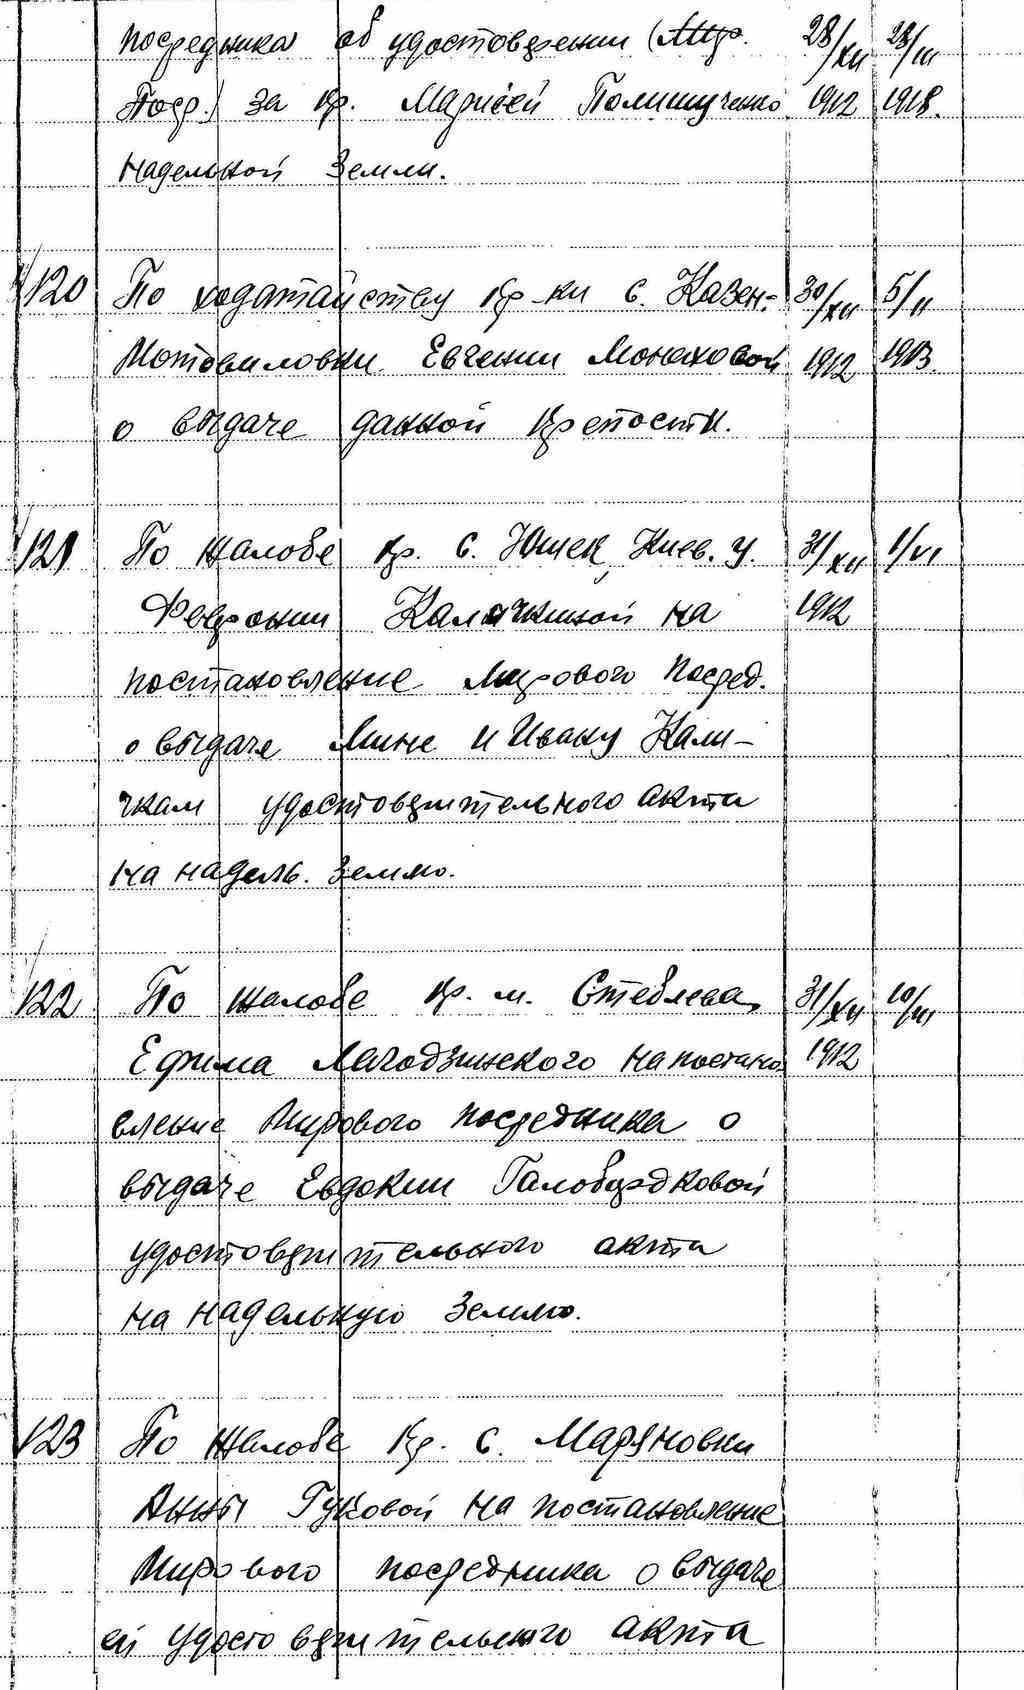 посредника об удостоверении (Мир. 28/XII 28/III
Поср.) за кр. Марией Полищученко 1912 1918.
надельной земли.
120 По ходатайству кр-ки с. Казен- 30/XII 5/II
Мотовиловки Евгении Монаховой 1912 1913.
о выдаче данной крепости.
121 По жалобе кр. с. Юшек, Киев. у. 31/XII 1/VI
Февронии Каличкиной на 1912
постановление Мирового посред.
о выдаче Мине и Ивану Кали-
чкам удостоверительного акта
на надель. землю.
122 По жалобе кр. м. Стеблева, 31/XII 10/III
Ефима Лагодзинского на постано- 1912
вление Мирового посредника о
выдаче Евдокии Галобурдковой
удостоверительного акта
на надельную землю.
123 По жалобе кр. с. Марьяновки
Анны Гуковой на постановление
Мирового посредника о выдаче
ей удостоверительного акта